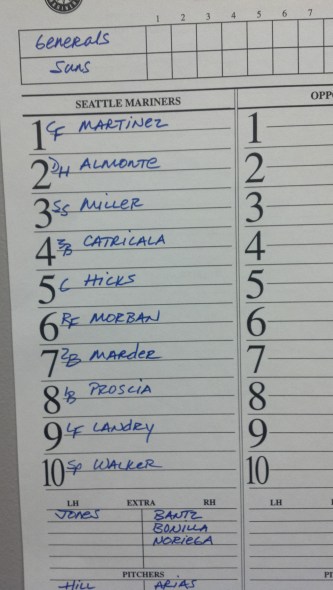 1 2 3 4 5 6 7
Generals
Suns
SEATTLE MARINERS OPPO
1 CF MARTINEZ 1
2 DH ALMONTE 2
3 SS MILLER 3
4 3B CATRICALA 4
5 C HICKS 5
6 RF MORBAN 6
7 2B MARDER 7
8 1B PROSCIA 8
9 LF LANDRY 9
10 SP WALKER 10
LH EXTRA RH LH
JONES BANTZ
BONILLA
NORIEGA
PITCHERS PI
HILL ARIAS